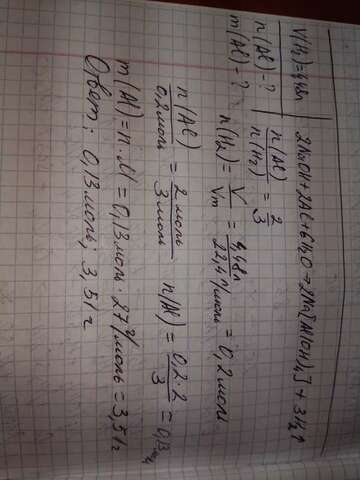 V(H₂)=4,48л
n(Al)-?
m(Al)-?
2NaOH+2Al+6H₂O→2Na[Al(OH)₄]+3H₂↑
n(Al)/n(H₂) = 2/3
n(H₂) = V/Vm = 4,48л/22,4 л/моль = 0,2 моль
n(Al)/0,2моль = 2 моль/3 моль n(Al) = 0,2·2/3 = 0,13моль
m(Al) = n·M = 0,13моль·27г/моль = 3,51г
Ответ: 0,13моль; 3,51г